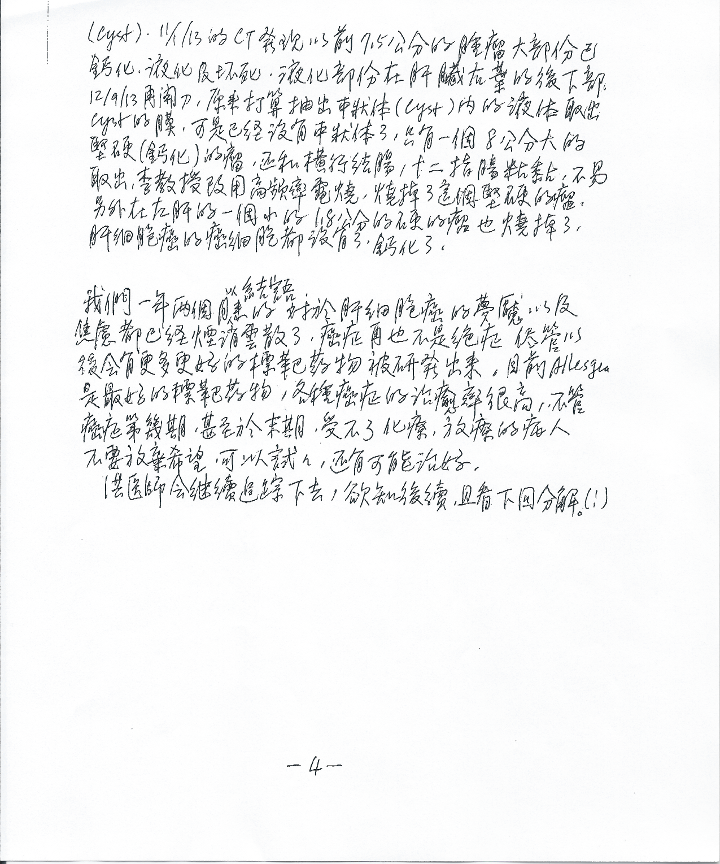 (Cyst). 11/1/13的CT發現以前7.5公分的腫瘤大部份已
鈣化、液化及坏死。液化部份在肝臟右葉的後下部.
12/9/13再開刀，原來打算抽出本狀体(Cyst)內的液体取出
Cyst的膜，可是已经沒有本狀体了，只有一個8公分大的
堅硬(鈣化)的瘤，还和橫行结腸，十二指腸粘黏，不易
取出，李教授改用高頻率電燒，燒掉了這個堅硬的瘤。
另外在左肝的一個小的1.8公分的硬的瘤也燒掉了。
肝细胞癌的癌细胞都沒有了，鈣化了。
結語
我們一年两個月以来的对於肝细胞癌的夢魘以及
焦慮都已经煙消雲散了，癌症再也不是绝症 儘管以
後会有更多更好的標靶药物被研發出来，目前
是最好的標靶药物，各種癌症的治癒率很高，不管
癌症第幾期，甚至於末期，受不了化療，放療的病人
不要放棄希望，可以試試，还有可能治好。
洪医師会继續追踪下去，欲知後續，且看下回分解。(!)
-4-